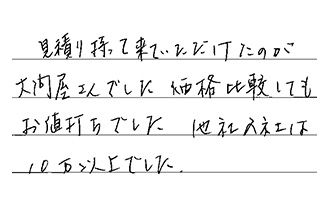 見積り持って来ていただけたのが
大問屋さんでした 価格比較しても
お値打ちでした 他社2社は
10万以上でした.